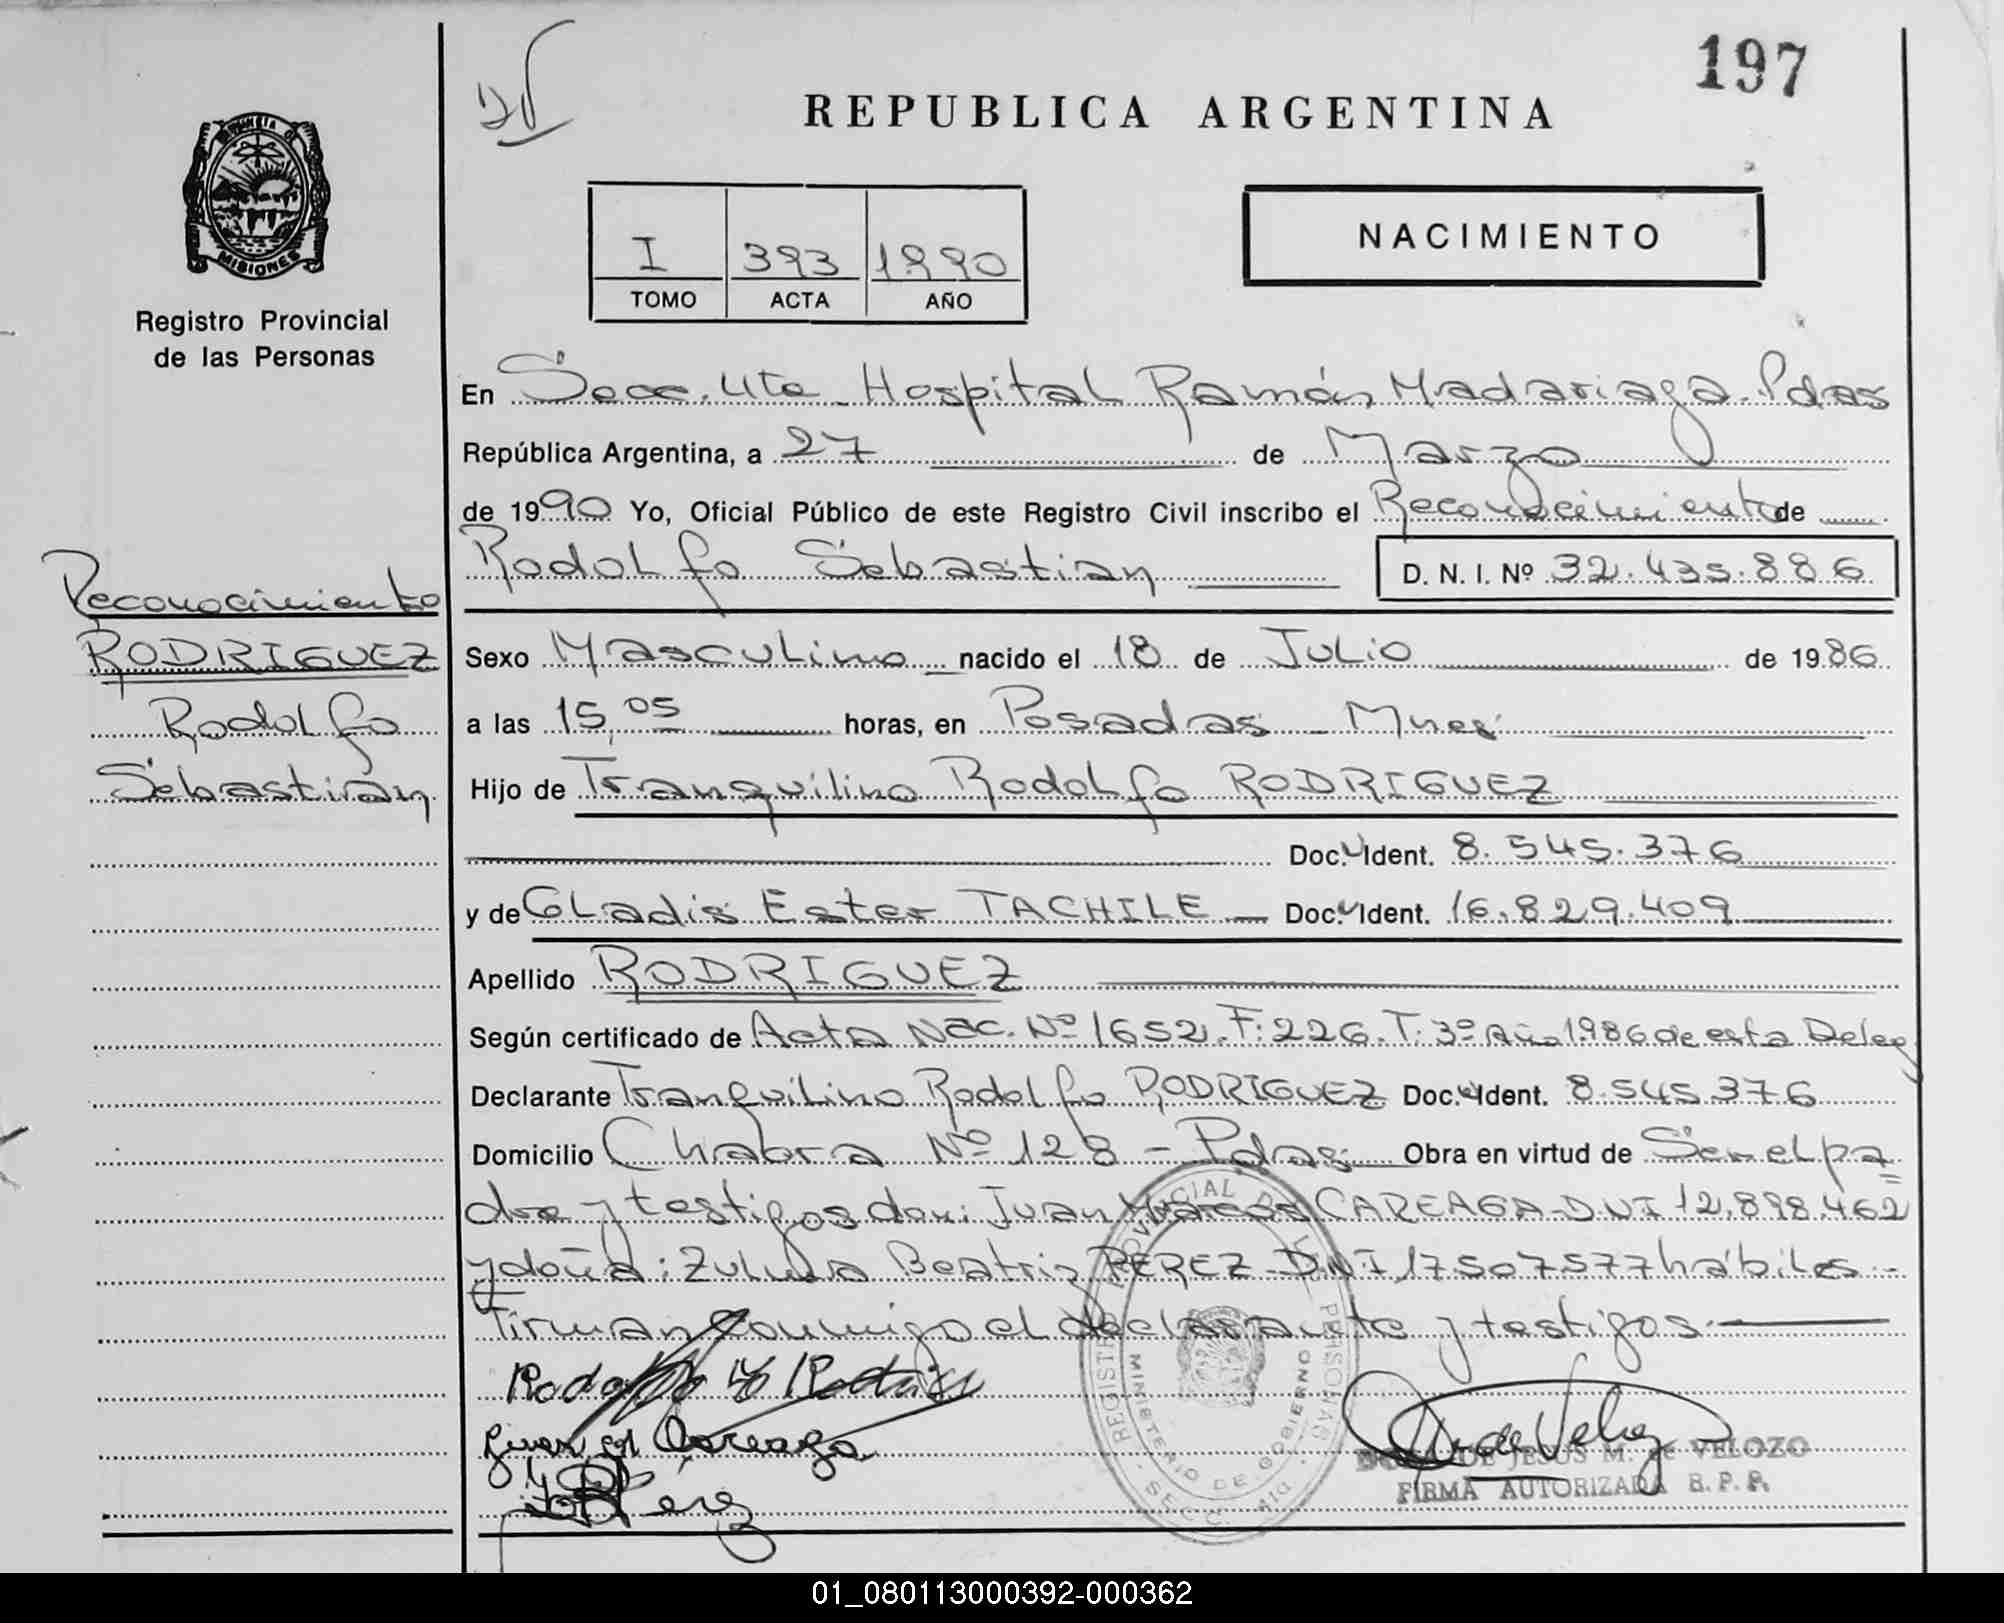 197
REPUBLICA ARGENTINA
NACIMIENTO
I 393 1990
TOMO ACTA AÑO
PROVINCIA DE
MISIONES
Registro Provincial
de las Personas
En Secc. 4ta. Hospital Ramón Madariaga. Pdas
República Argentina, a 27 de Marzo
de 1990 Yo, Oficial Público de este Registro Civil inscribo el Reconocimiento de
Rodolfo Sebastian D. N. I. Nº 32.435.886
Reconocimiento
RODRIGUEZ
Rodolfo
Sebastian
Sexo Masculino nacido el 18 de Julio de 1986
a las 15,05 horas, en Posadas - Mnes
Hijo de Tranquilino Rodolfo RODRIGUEZ
Doc. Ident. 8.545.376
y de Gladis Ester TACHILE Doc. Ident. 16.829.409
Apellido RODRIGUEZ
Según certificado de Acta Nac. Nº 1652. F: 226. T: 3º Año 1986 de esta Deleg
Declarante Tranquilino Rodolfo RODRIGUEZ Doc. Ident. 8.545.376
Domicilio Chabra Nº 128 - Pdas Obra en virtud de Ser el pa
dre y testigos don: Juan Marcos CAREAGA - DNI 12.898.462
y doña: Zulma Beatriz PEREZ - DNI 17507577 hábiles -
Firman conmigo el declarante y testigos
REGISTRO PROVINCIAL DE LAS PERSONAS
MINISTERIO DE GOBIERNO
DE JESUS M. de VELOZO
FIRMA AUTORIZADA R. P. P.
01_080113000392-000362